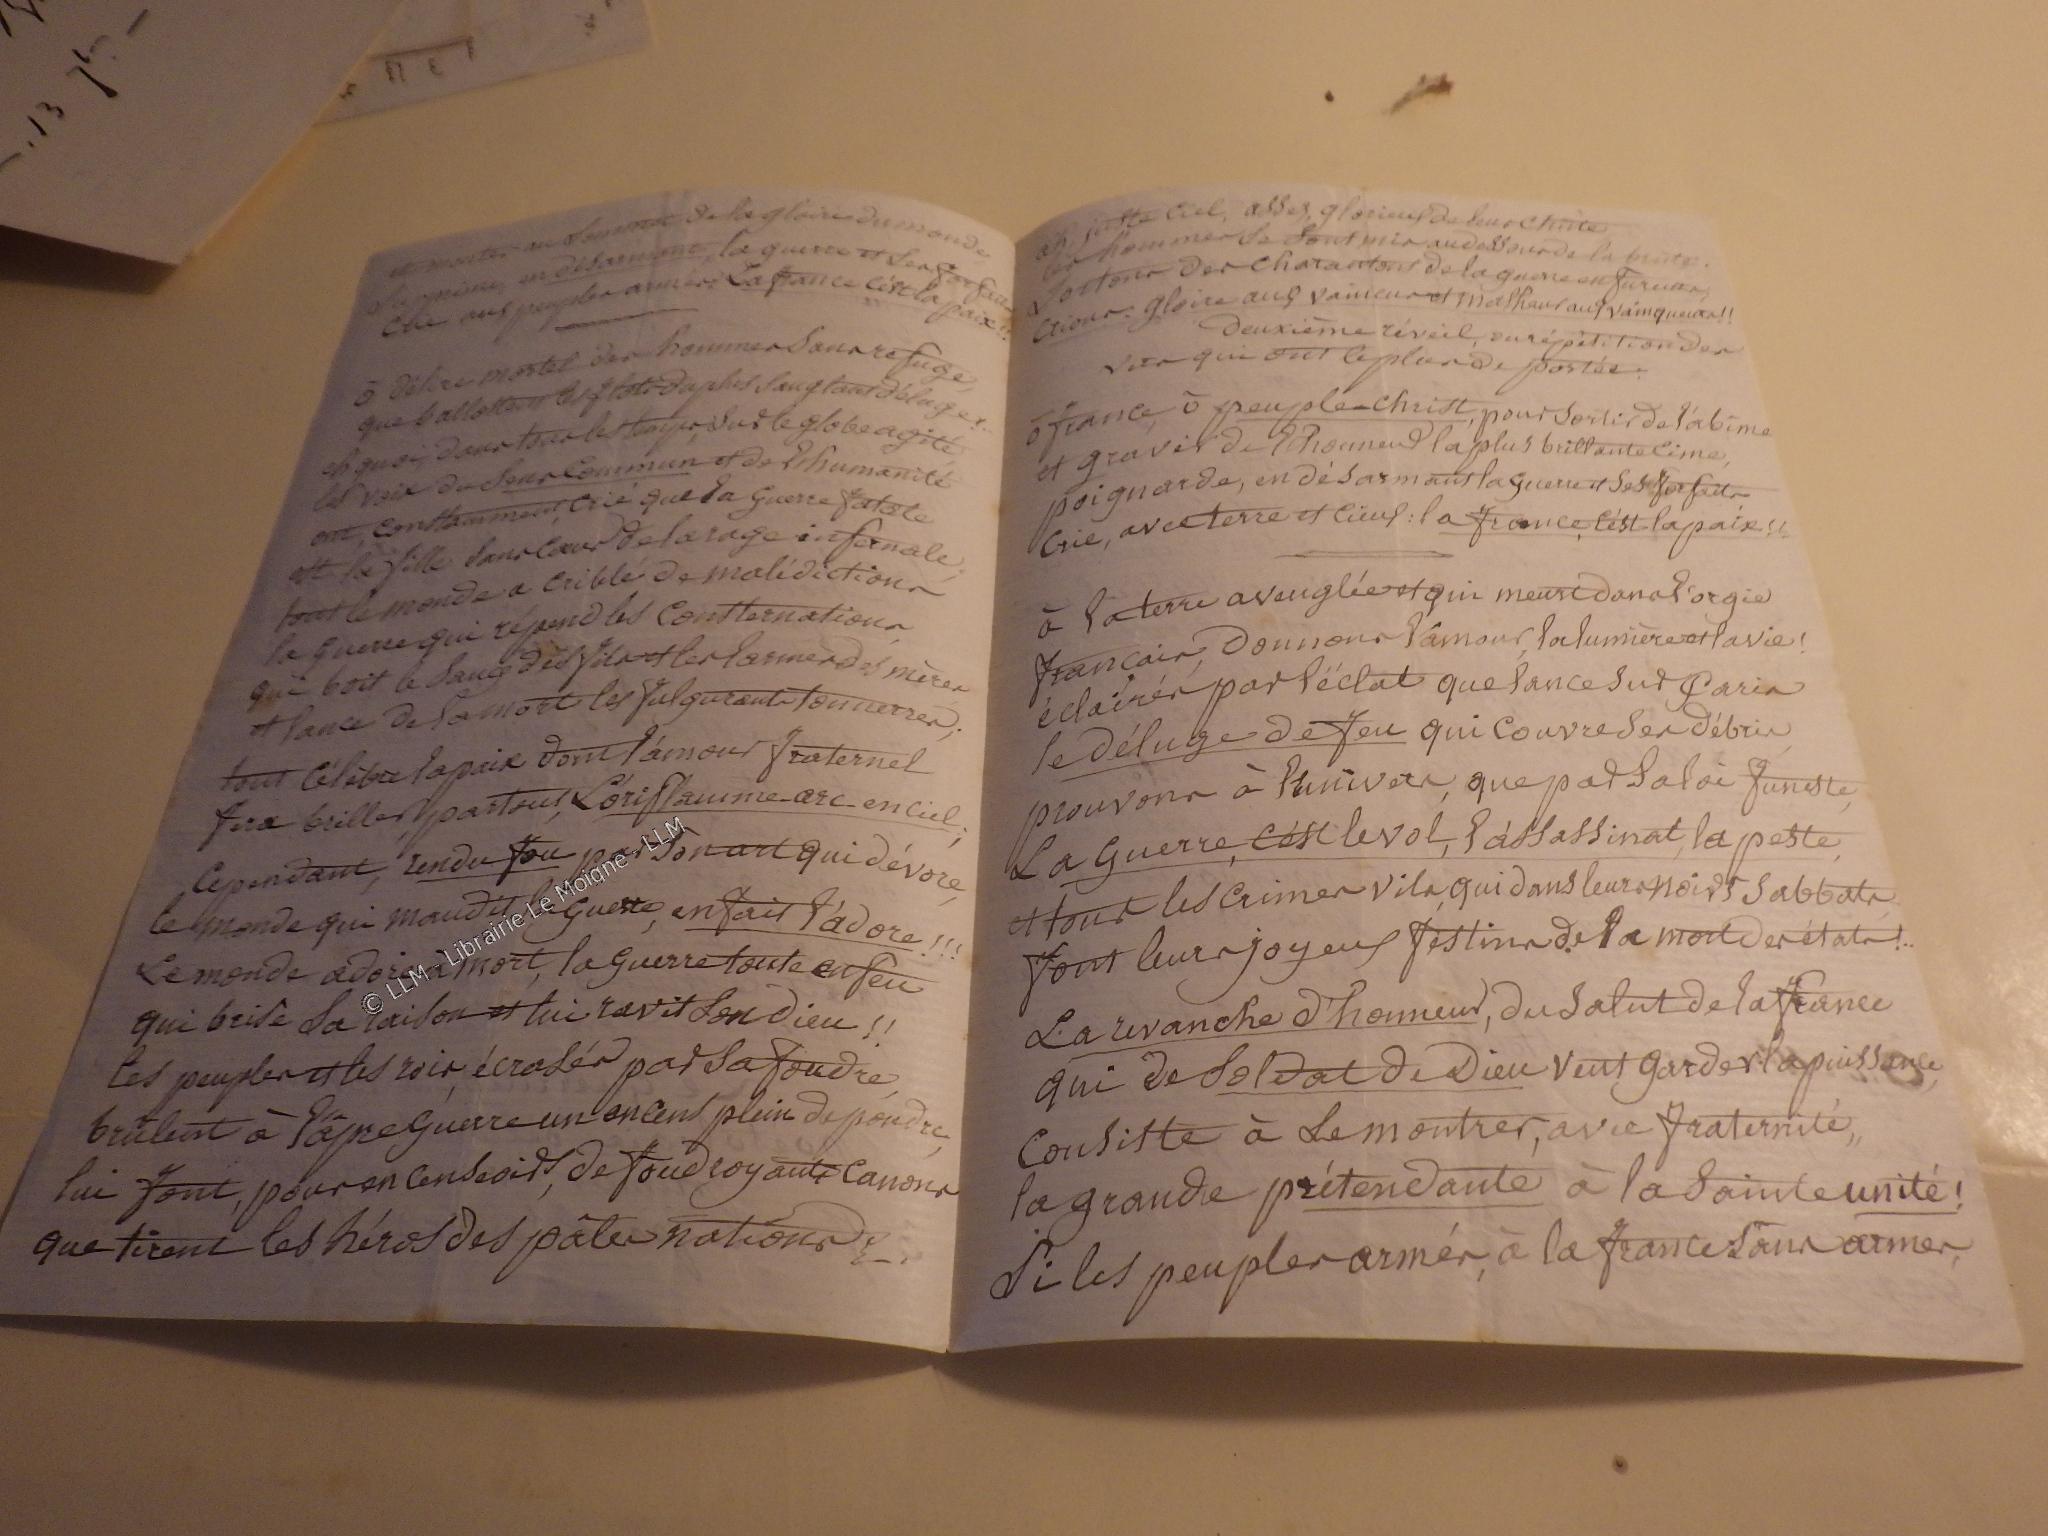 et monter au sommet de la gloire du monde,
en désarmant, la guerre et ses forfaits
crie aux peuples armés: La france c'est la paix!!
ô délire mortel des hommes sans refuge,
que ballottent les flots du plus sanglant déluge!..
eh quoi, dans tous les temps, sur le globe agité
les voix du sens commun et de l'humanité
ont, constamment, crié que la guerre fatale
est la fille sans cœur de la rage infernale;
tout le monde a criblé de malédictions
la guerre qui répend les consternations,
qui boit le sang des fils et les larmes des mères
et lance de la mort les fulgurants tonnerres;
tout célèbre la paix dont l'amour fraternel
fera briller, partout, L'oriflamme-arc-en ciel;
Cependant, rendu fou par son art qui dévore,
le monde qui maudit la guerre, en fait l'adore!!!
Le monde adore la mort, la guerre toute en feu
qui brise sa raison et lui ravit son Dieu!!
les peuples et les rois, écrasés par sa foudre,
brûlent à l'âpre guerre un encens plein de poudre,
lui font, pour encensoirs, de foudroyants canons
que tirent les héros des pâles nations!..
ah, juste ciel, assez, glorieux de leur chute
les hommes se sont mis au dessous de la brute.
Sortons des charantons de la guerre en fureur,
crions: gloire aux vaincus et malheur aux vainqueurs!!
Deuxième réveil, ou répétition des
vers qui ont le plus de portée.
ô france, ô peuple-christ, pour sortir de l'abîme
et gravir de l'honneur la plus brillante cime,
poignarde, en désarmant la guerre et ses forfaits
crie, avec terre et cieux: la france, c'est la paix!!
à la terre aveuglée et qui meurt dans l'orgie
français, donnons l'amour, la lumière et la vie!
éclairés par l'éclat que lance sur Paris
le déluge de feu qui couvre ses débris,
prouvons à l'univers, que par sa loi funeste,
La guerre, c'est le vol, l'assassinat, la peste,
et tous les crimes vils, qui dans leurs noirs sabbats,
font leurs joyeux festins de la mort des états!..
La revanche d'honneur, du salut de la france
qui de soldat de Dieu veut garder la puissance,
consiste à se montrer, avec fraternité,
la grande prétendante à la sainte unité!
Si les peuples armés, à la france sans armes,
© LLM - Librairie Le Moigne - LLM